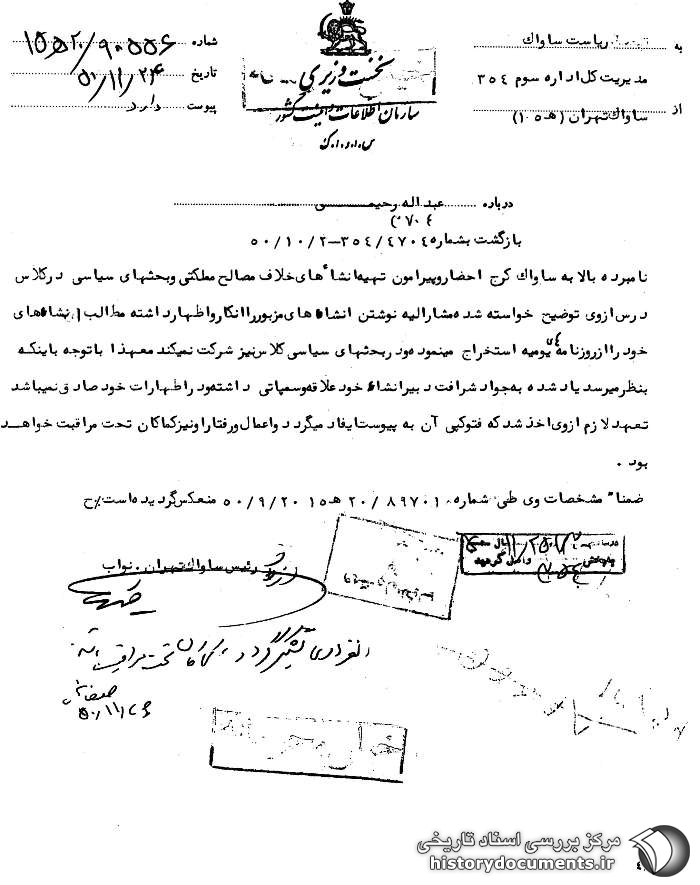 به ریاست ساواک
مدیریت کل اداره سوم ۳۵۴
از ساواک تهران (۱۰۵ هـ)
نخست وزیری
سازمان اطلاعات و امنیت کشور
س.ا.و.ا.ک
شماره ۹۰۵۵۶/۲۰هـ۱۵
تاریخ ۵۰/۱۱/۲۴
پیوست دارد
درباره عبداله رحیمی
بازگشت بشماره ۳۵۴/۴۷۰۴-۵۰/۱۰/۲
نامبرده بالا به ساواک کرج احضار و پیرامون تهیه انشاءهای خلاف مصالح مملکتی و بحثهای سیاسی در کلاس
درس از وی توضیح خواسته شده مشارالیه نوشتن انشاءهای مزبور را انکار و اظهار داشته مطالب انشاءهای
خود را از روزنامه های یومیه استخراج مینموده و در بحثهای سیاسی کلاس نیز شرکت نمیکند معهذا با توجه باینکه
بنظر میرسد یاد شده به جواد شرافت دبیر انشاء خود علاقه و سمپاتی داشته و در اظهارات خود صادق نمیباشد
تعهد لازم از وی اخذ شد که فتوکپی آن به پیوست ایفاد میگردد و اعمال و رفتار او نیز کماکان تحت مراقبت خواهد
بود .
ضمنا" مشخصات وی طی شماره ۸۹۷۰۱/۲۰هـ۱۵ ۵۰/۹/۲۰ منعکس گردیده است/ح
رئیس ساواک تهران . نواب
از طرف
انفرادی تشکیل گردد ، کماکان تحت مراقبت
۵۰/۱۱/۲۶
خیلی محرمانه
مرکز بررسی اسناد تاریخی
historydocuments.ir